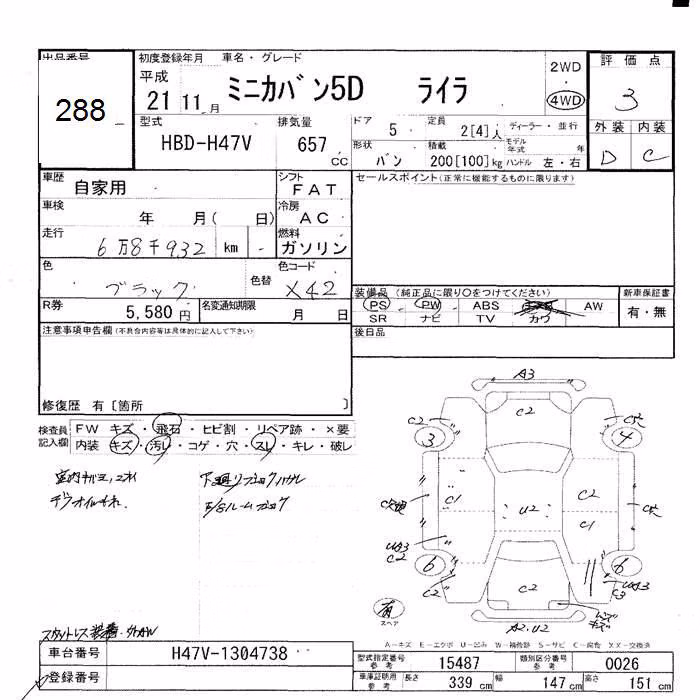 出品番号
288
初度登録年月 車名・グレード
平成 21 11月
ミニカバン5D ライラ
2WD
4WD
評価点
3
外装 内装
D C
型式
HBD-H47V
排気量
657 CC
ドア 5
定員 2[4]人
ディーラー・並行
形状 バン
積載 200[100]kg
モデル年式 年
ハンドル 左・右
車歴 自家用
シフト FAT
車検 年 月( 日)
冷房 AC
走行 6万8千932 km
燃料 ガソリン
色 ブラック
色替
色コード X42
R券 5,580円
名変通知期限 月 日
セールスポイント(正常に機能するものに限ります)
装備品 (純正品に限り○をつけてください)
新車保証書
PS PW ABS AW
SR ナビ TV カワ
有・無
後日品
注意事項申告欄(不具合内容等は具体的に記入して下さい)
修復歴 有[箇所 ]
検査員記入欄
FW キズ・飛石・ヒビ割・リペア跡・×要
内装 キズ・汚レ・コゲ・穴・スレ・キレ・破レ
A3
C2
C2
3 4
C1 C2
C1
U2
C2
6 6
C2
C2
C3
A2.U2
有
スペア
A-キズ E-エクボ U-凹み W-補修跡 S-サビ C-腐食 XX-交換済
車台番号 H47V-1304738
登録番号
型式指定番号 参考 15487
類別区分番号 参考 0026
車庫証明用 参考 長さ 339 cm 幅 147 cm 高さ 151 cm